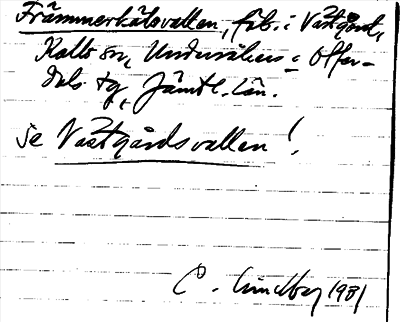 Främmerkälsvallen, fäb. i Västgård,
Kalls sn, Undersåkers o Offer-
dals tg, Jämtl. län.
Se Västgårdsvallen!
C. Lindberg 1981